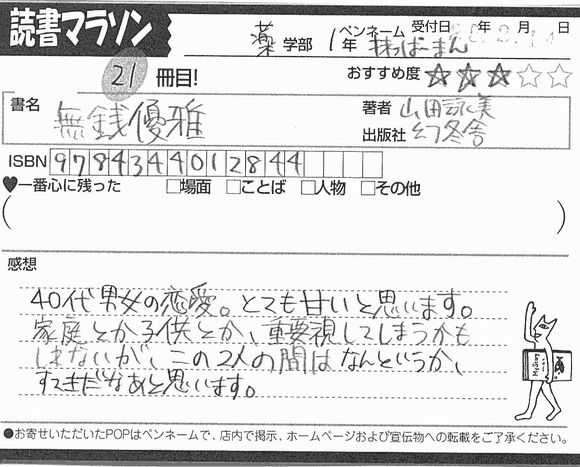 読書マラソン
薬 学部 1年
ペンネーム 抹っぱーまん
受付日 年 2月 14日
21 冊目!
おすすめ度 ★★★☆☆
書名 無銭優雅
著者 山田詠美
出版社 幻冬舎
ISBN 9784344012844
♥一番心に残った □場面 □ことば □人物 □その他
( )
感想
40代男女の恋愛。とても甘いと思います。
家庭とか子供とか、重要視してしまうかも
しれないが、この2人の間はなんというか、
すてきだなあと思います。
Mystery
●お寄せいただいたPOPはペンネームで、店内で掲示、ホームページおよび宣伝物への転載をご了承ください。